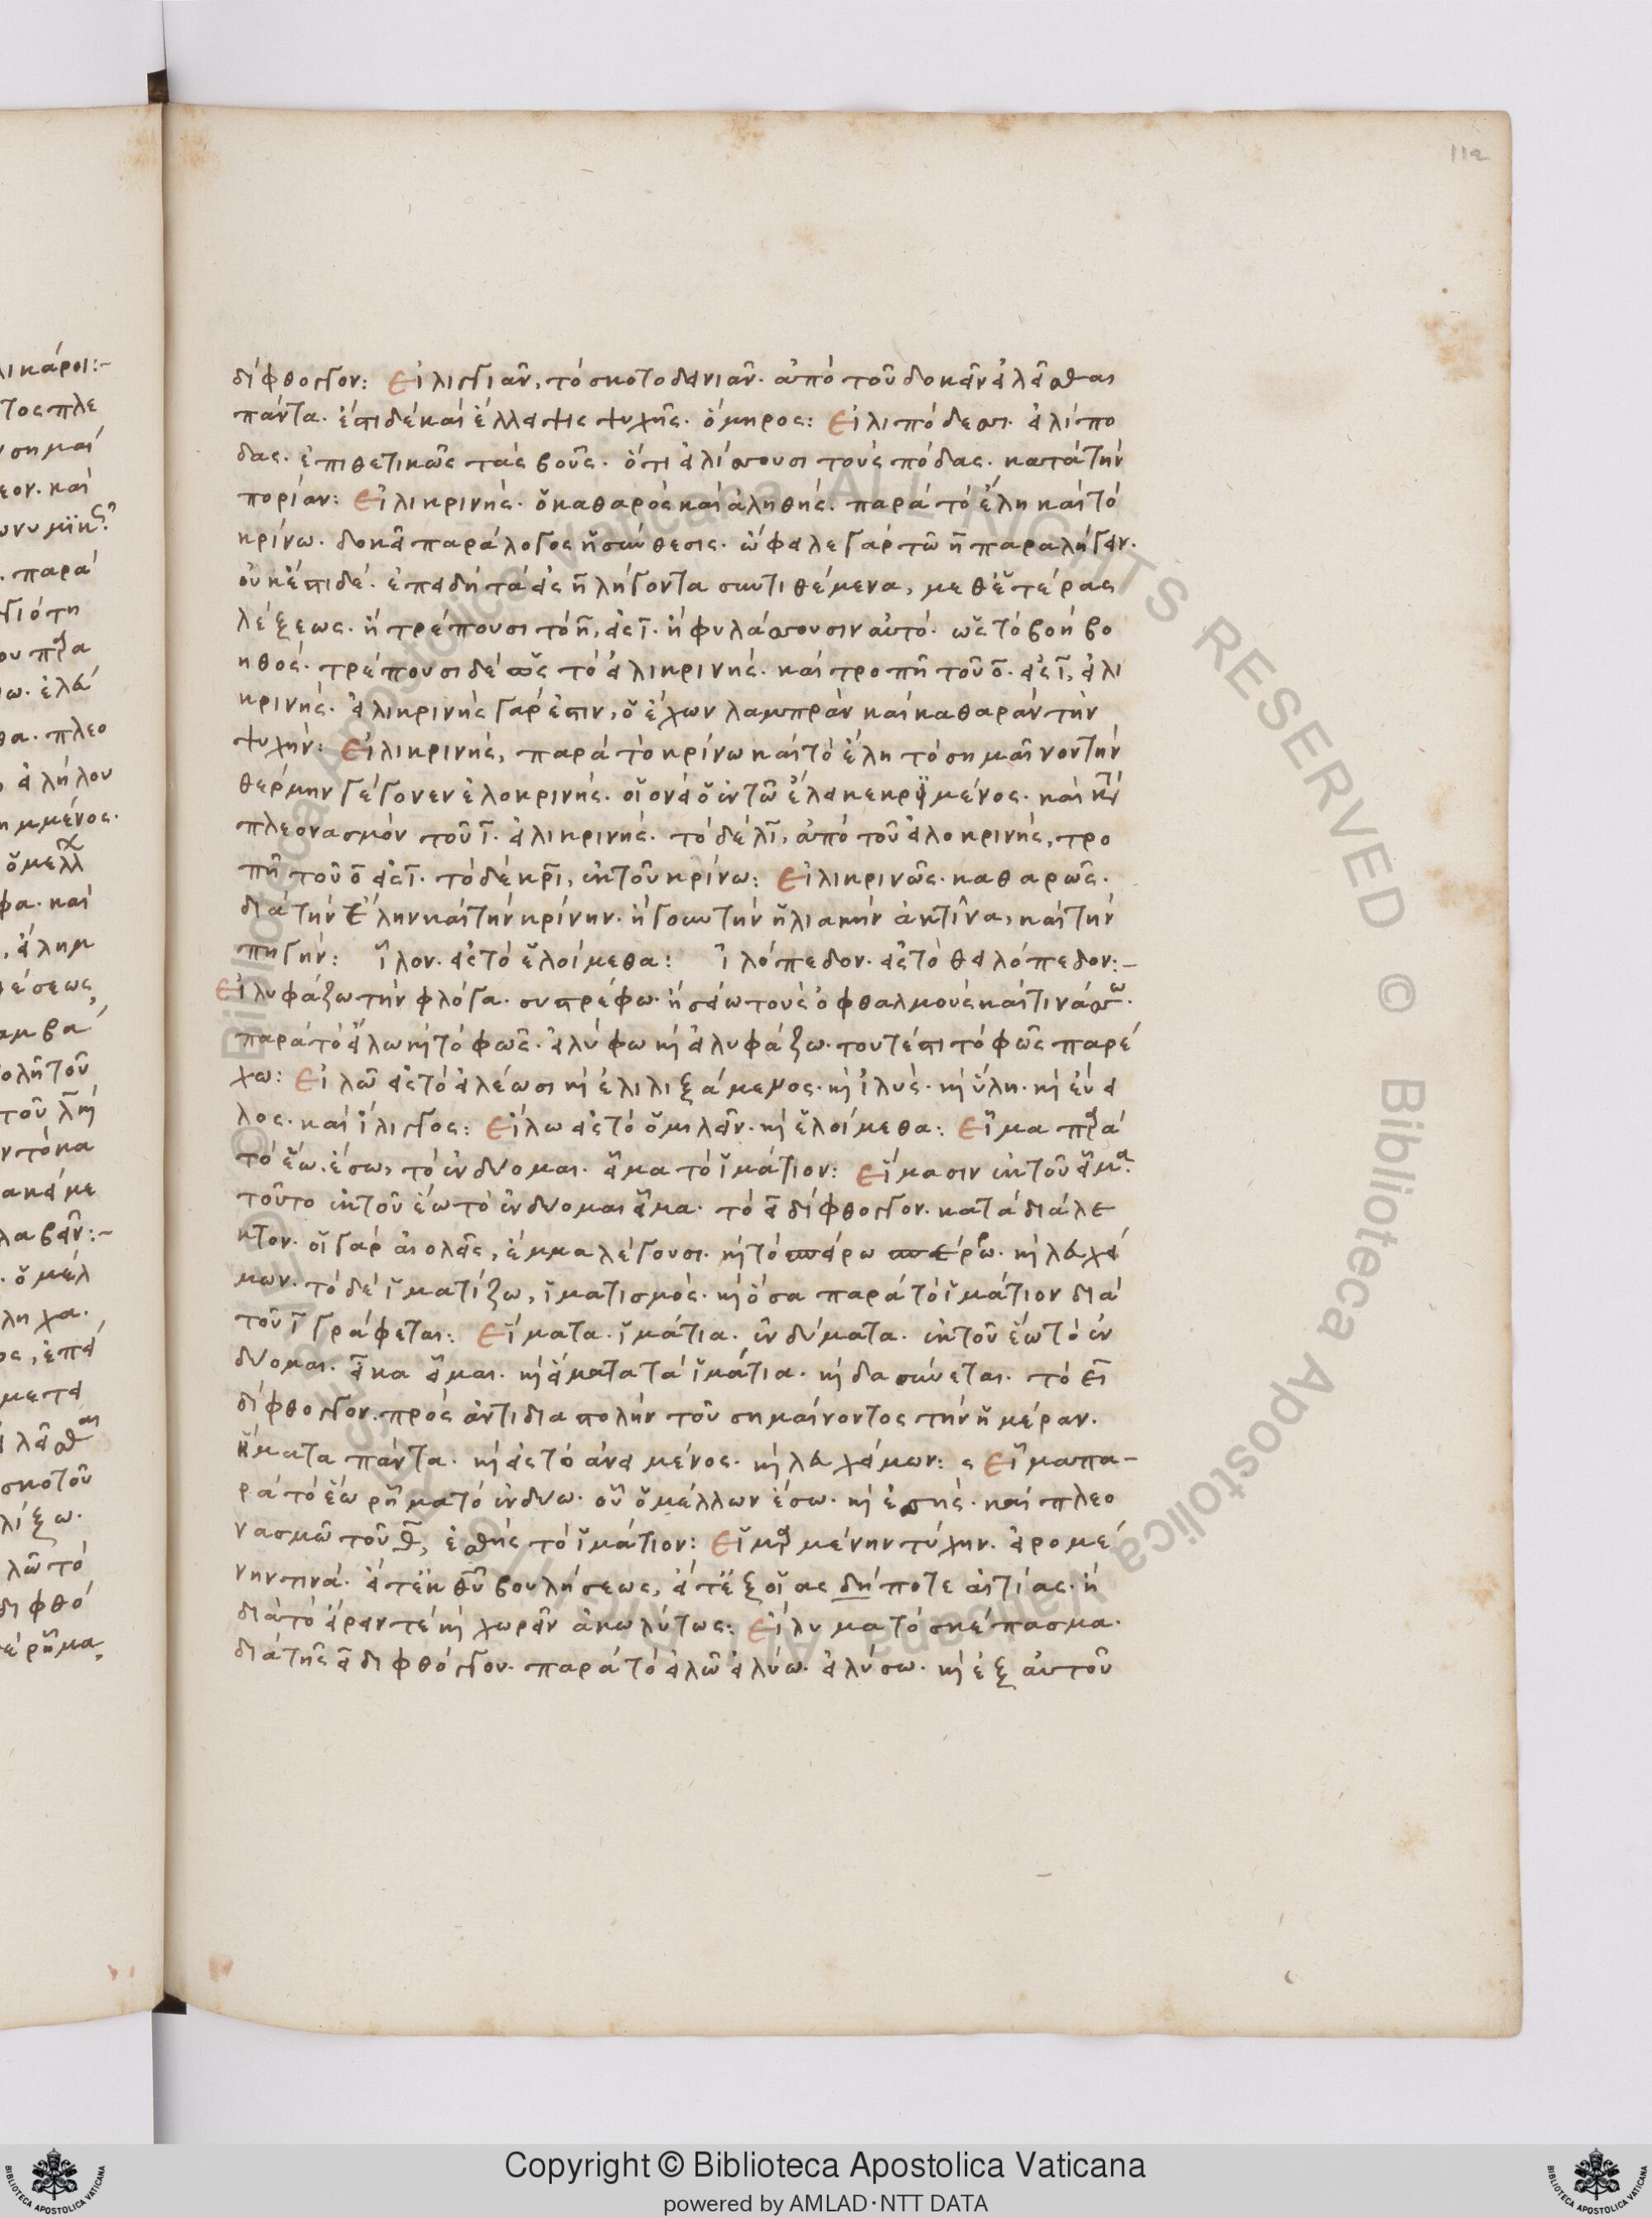 112
δίφθογγον: Εἰλιγγιᾶν, τό σκοτοδινιᾶν. ἀπό τοῦ δοκεῖν εἰλεῖσθαι
πάντα. ἔστι δέ καί ἔλλειψις ψυχῆς. ὅμηρος: Εἰλιπόδεσσι. εἰλίπο
δας. ἐπιθετικῶς τάς βοῦς. ὅτι εἰλίσσουσι τούς πόδας. κατά τήν
πορίαν: Εἰλικρινής. ὁ καθαρός καί ἀληθής. παρά τό ἕλη καί τό
κρίνω. δοκεῖ παράλογος ἡ σύνθεσις. ὤφειλε γάρ τῶ η παραλήγειν.
οὐκ ἔστι δέ. ἐπειδή τά εἰς η λήγοντα συντιθέμενα, μεθ' ἑτέρας
λέξεως. ἤ τρέπουσι τό η, εἰς ο. ἤ φυλάττουσιν αὐτό. ὡς τό βοή βο
ηθός. τρέπουσι δέ ὡς τό εἰλικρινής. καί τροπῆ τοῦ ο. εἰς ι, εἰλι
κρινής. εἰλικρινής γάρ ἐστιν, ὁ ἔχων λαμπράν καί καθαράν τήν
ψυχήν: Εἰλικρινής, παρά τό κρίνω καί τό ἕλη τό σημαῖνον τήν
θέρμην γέγονεν ἑλοκρινής. οἱονεί ὁ ἐν τῶ ἕλει κεκριμένος. καί κατά
πλεονασμόν τοῦ ι. εἰλικρινής. τό δέ λι, ἀπό τοῦ εἰλοκρινής, τρο
πῆ τοῦ ο εἰς ι. τό δέ κρι, ἐκ τοῦ κρίνω: Εἰλικρινῶς. καθαρῶς.
διά τήν ἕλην καί τήν κρίνην. ἤγουν τήν ἡλιακήν ἀκτῖνα, καί τήν
πηγήν: ἷλον. εἰς τό ἑλοίμεθα: ἱλόπεδον. εἰς τό θειλόπεδον:-
Εἰλυφάζω τήν φλόγα. συστρέφω. ἤ σείω τούς ὀφθαλμούς καί τινάσσω.
παρά τό εἴλω καί τό φῶς. εἰλύφω καί εἰλυφάζω. τουτέστι τό φῶς παρέ
χω: Εἰλῶ εἰς τό εἰλέωσι καί ἐλιλιξάμενος. καί ἰλύς. καί ὕλη. καί εὐεί
λος. καί ἴλιγγος: Εἴλω εἰς τό ὁμιλεῖν. καί ἑλοίμεθα: Εἷμα παρά
τό ἕω. ἕσω, τό ἐνδύομαι. εἷμα τό ἱμάτιον: Εἵμασιν ἐκ τοῦ εἷμα.
τοῦτο ἐκ τοῦ ἕω τό ἐνδύομαι εἷμα. τό ει δίφθογγον. κατά διάλε
κτον. οἱ γάρ αἰολεῖς, ἔμμα λέγουσι. καί τό σπείρω σπέρρω. καί λαχεί
μων. τό δέ ἱματίζω, ἱματισμός. καί ὅσα παρά τό ἱμάτιον διά
τοῦ ι γράφεται: Εἵματα. ἱμάτια. ἐνδύματα. ἐκ τοῦ ἕω τό ἐν
δύομαι. εἷκα εἷμαι. καί εἵματα τά ἱμάτια. καί δασύνεται. τό ει
δίφθογγον. πρός ἀντιδιαστολήν τοῦ σημαίνοντος τήν ἡμέραν.
ἤματα πάντα. καί εἰς τό ἀνειμένος. καί λαχείμων: Εἷμα πα-
ρά τό ἕω ρῆμα τό ἐνδύω. οὗ ὁ μέλλων ἕσω. καί ἐσης. καί πλεο
νασμῶ τοῦ θ, ἐσθής τό ἱμάτιον: Εἱμαρμένην τύχην. εἱρομέ
νην τινά. εἴτε ἐκ θεοῦ βουλήσεως, εἴτε ἐξ οἵας δήποτε αἰτίας. ἤ
διά τό εἴρειν τέ καί χωρεῖν ἀκωλύτως: Εἴλυμα τό σκέπασμα.
διά τῆς ει διφθόγγου. παρά τό εἰλῶ εἰλύω. εἰλύσω. καί ἐξ αὐτοῦ
Copyright © Biblioteca Apostolica Vaticana
powered by AMLAD·NTT DATA